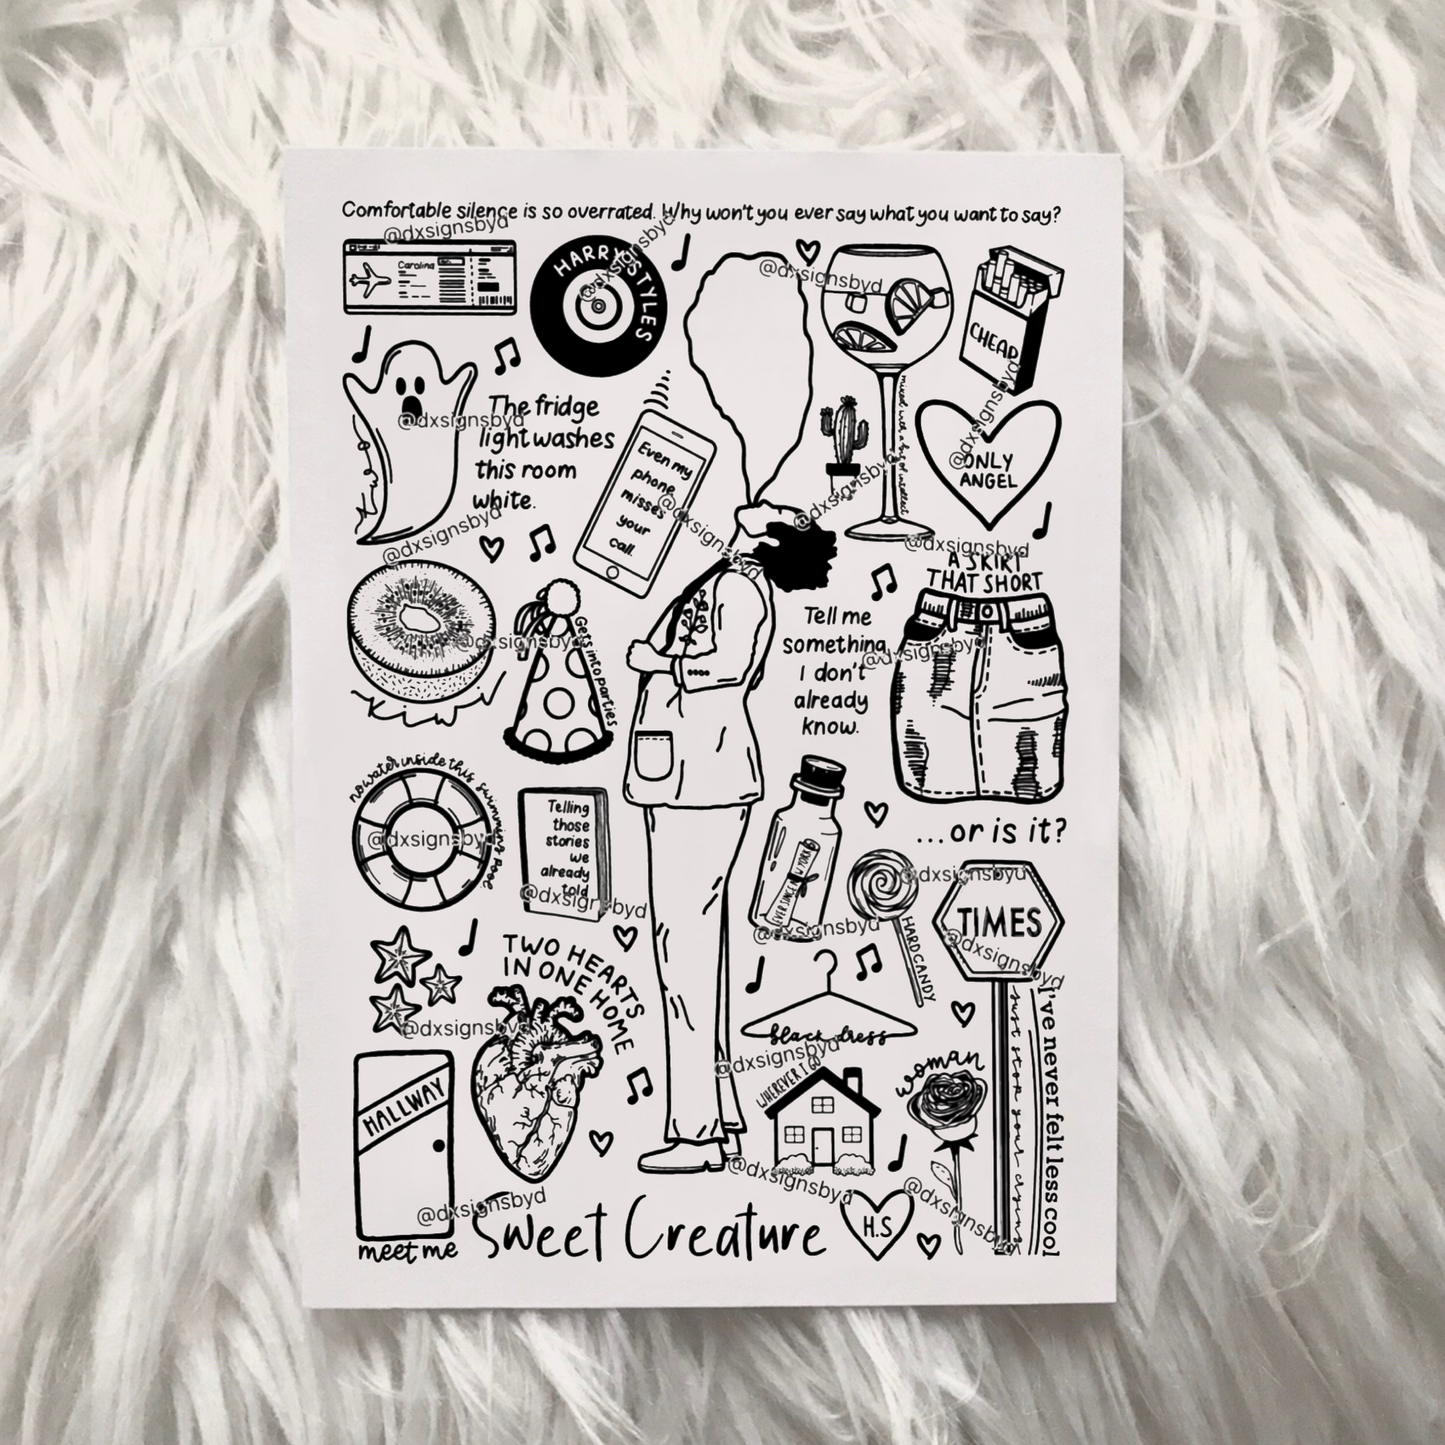 Comfortable silence is so overrated. Why won't you ever say what you want to say?
@dxsignsbyd
Carolina
HARRY STYLES
@dxsignsbyd
@dxsignsbyd
CHEAP
@dxsignsbyd
The fridge
light washes
this room
white.
@dxsignsbyd
@dxsignsbyd
Even my
phone
misses
your
call.
@dxsignsbyd
mixed with a bit of intellect
@dxsignsbyd
ONLY
ANGEL
@dxsignsbyd
A SKIRT
THAT SHORT
Gets into parties
@dxsignsbyd
Tell me
something
I don't
already
know.
@dxsignsbyd
...or is it?
no water inside this swimming pool
@dxsignsbyd
Telling
those
stories
we
already
told
@dxsignsbyd
EVER SINCE NEW YORK
@dxsignsbyd
HARD CANDY
@dxsignsbyd
TIMES
@dxsignsbyd
I've never felt less cool
just stop your crying
TWO HEARTS
IN ONE HOME
@dxsignsbyd
black dress
@dxsignsbyd
WHEREVER I GO
@dxsignsbyd
woman
@dxsignsbyd
HALLWAY
@dxsignsbyd
meet me
Sweet Creature
H.S